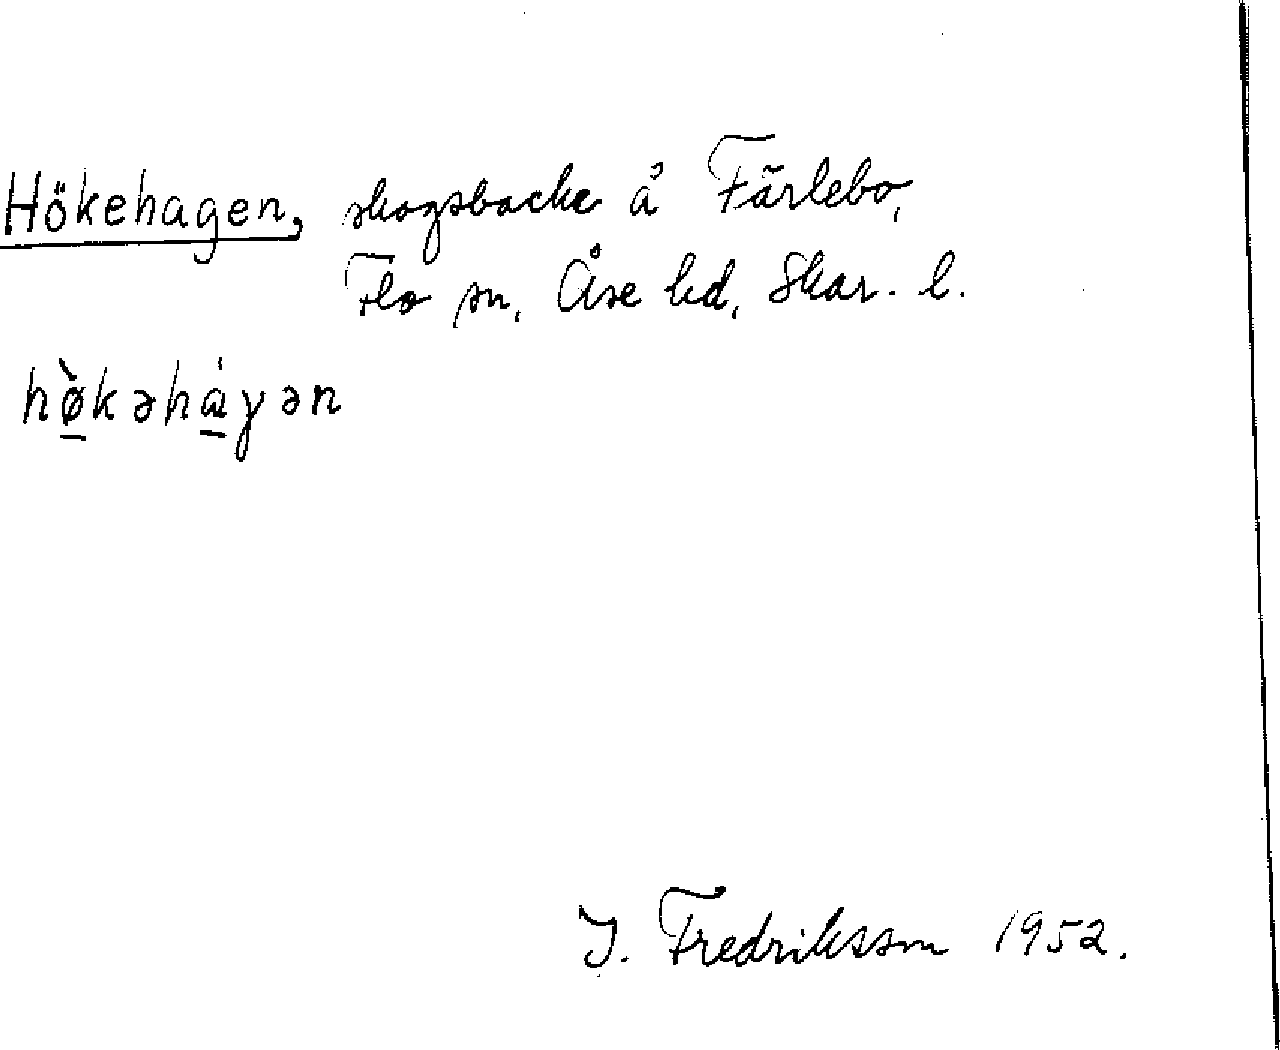 Hökehagen, skogsbacke å Färlebo,
Flo sn, Åse hd, Skar. l.
hø̀kəháγən
I. Fredriksson 1952.